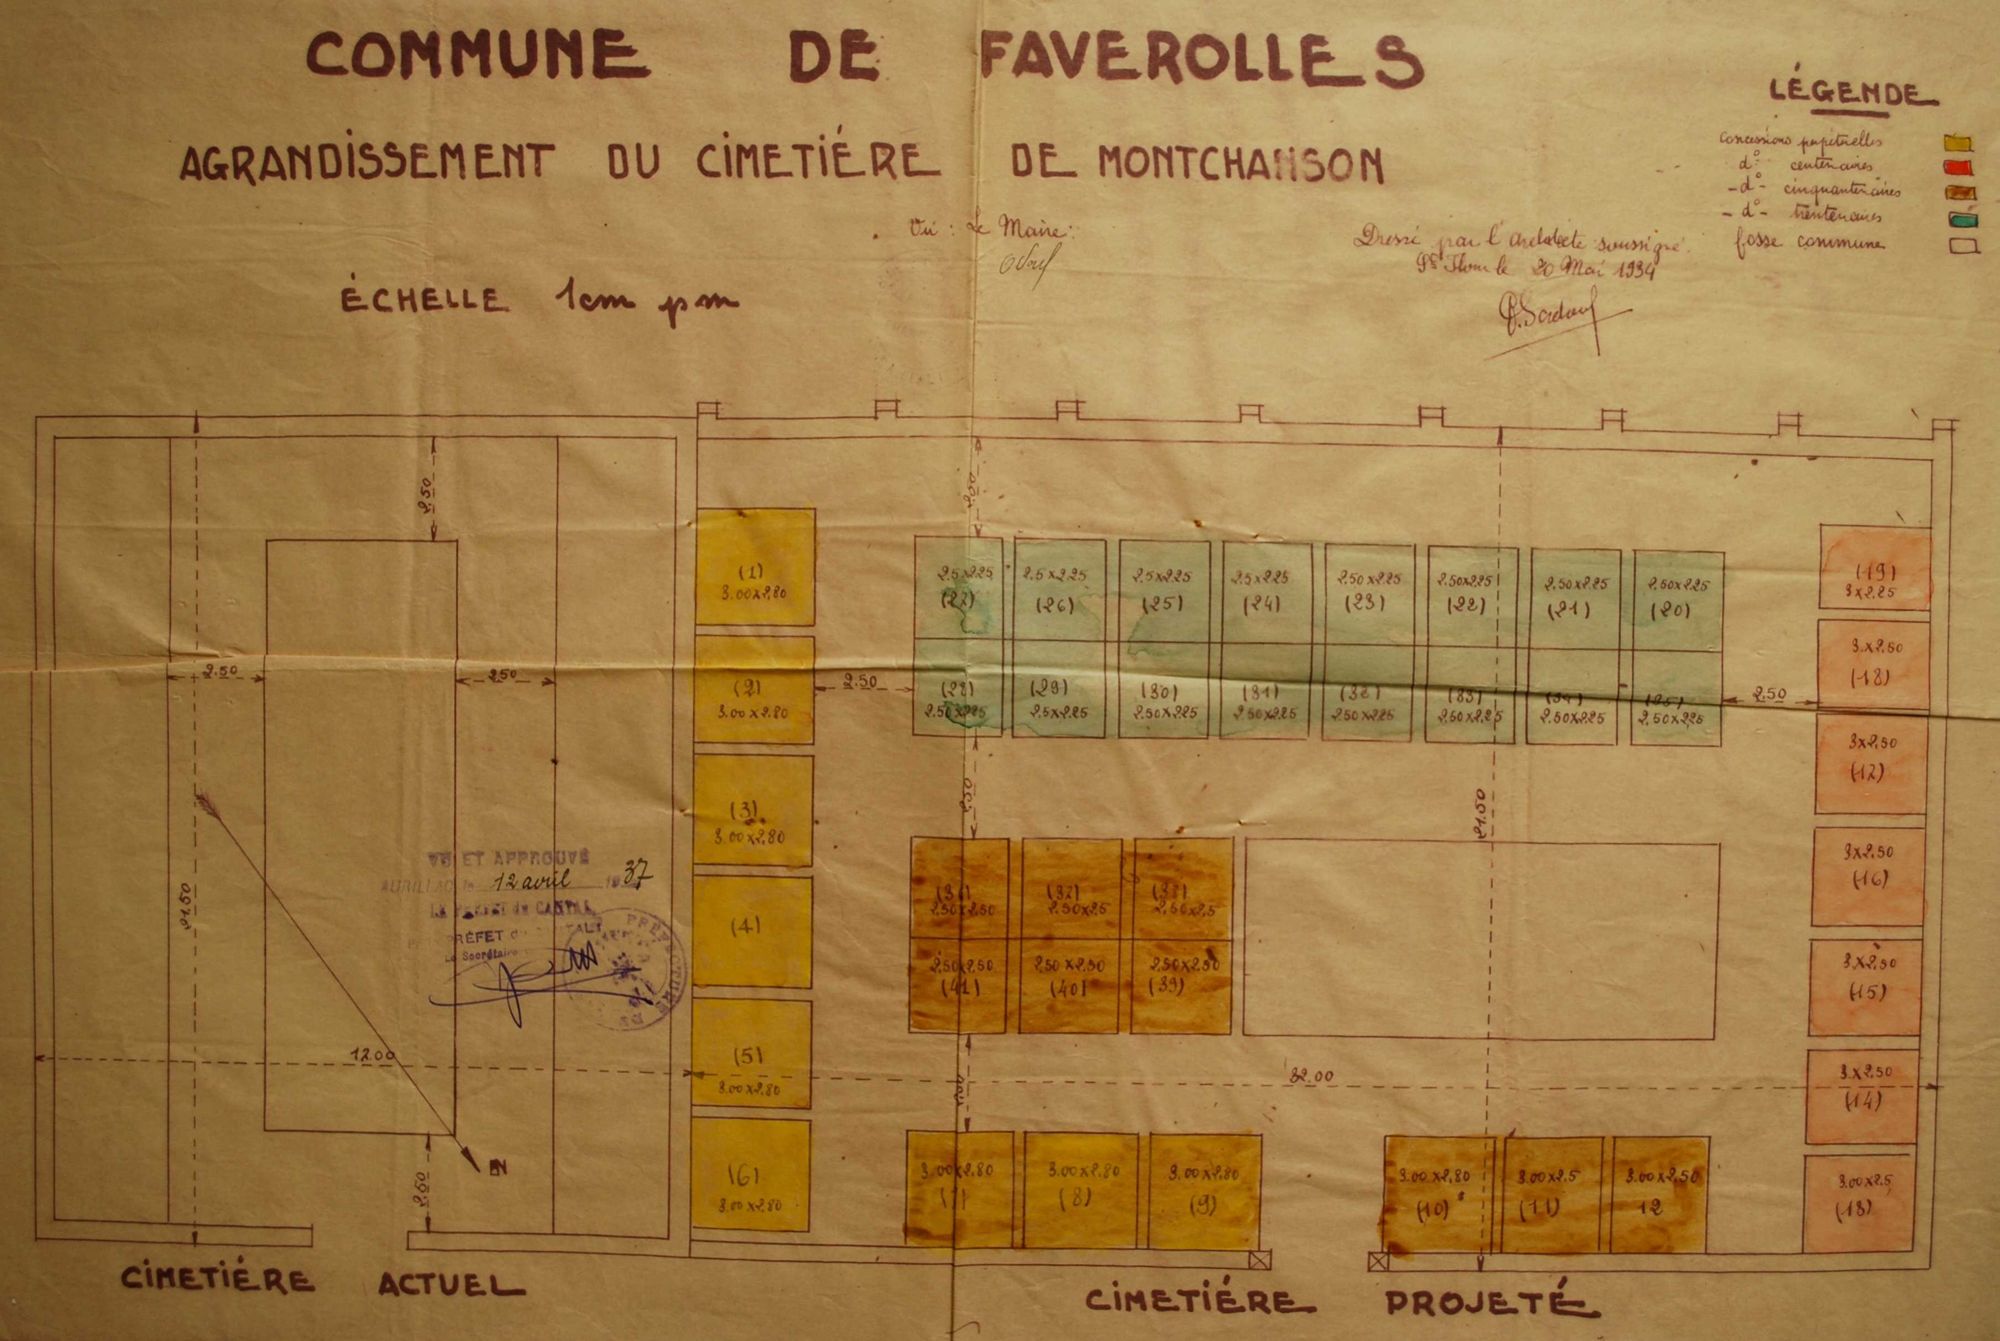 COMMUNE DE FAVEROLLES
AGRANDISSEMENT DU CIMETIÉRE DE MONTCHANSON
ÉCHELLE 1cm p m
Vu : Le Maire :
Dressé par l'architecte soussigné.
St Flour le 20 Mai 1934
LÉGENDE
concessions perpétuelles
d° centenaires
-d°- cinquantenaires
-d°- trentenaires
fosse commune
2.50
2.50
2.50
21.50
12.00
2.50
N
VU ET APPROUVÉ
AURILLAC le 12 avril 1937
LE PRÉFET du CANTAL
PRÉFET
Le Secrétaire
CIMETIÉRE ACTUEL
(1)
3.00x2,80
(2)
3.00x2.80
(3)
3.00x2,80
(4)
(5)
3.00x2,80
(6)
3.00x2,80
2.50
2.5x2.25 2.5x2.25 2.5x2.25 2.5x2.25 2.50x2.25 2.50x2,25 2.50x2.25 2.50x2.25
(27) (26) (25) (24) (23) (22) (21) (20)
(28) (29) (30) (31) (32) (33) (34) (35)
2.50x2.25 2.5x2.25 2.50x2.25 2.50x2.25 2.50x2.25 2.50x2,25 2.50x2.25 2.50x2,25
2.50
2.50
2.50
21.50
(37) (38)
2.50x2.50 2.50x2.5 2.50x2.5
2.50x2.50 2.50x2.50 2.50x2.50
(41) (40) (39)
32.00
3.00x2.80 3.00x2.80 3.00x2.80 3.00x2,80 3.00x2.5 3.00x2.50
(7) (8) (9) (10) (11) 12
(19)
3x2.25
3x2.50
(18)
3x2.50
(17)
3x2.50
(16)
3x2.50
(15)
3x2.50
(14)
3.00x2.5
(13)
CIMETIÉRE PROJETÉ